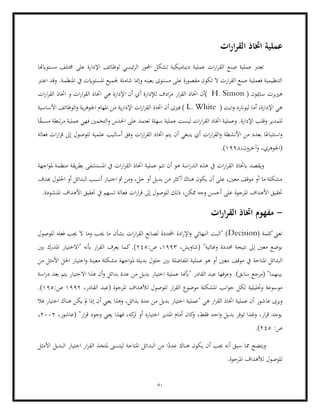 عملية اتخاذ القرارات
تعتبر عملية صنع القرارات عملية ديناميكية تشكل المحور الرئيسي لوظائف الإدارة على مختلف مستوياتها
التنظيمية فعملية صنع القرارات لا تكون مقصورة على مستوى بعينه وإنما شاملة لجميع المستويات في المنظمة. وقد اعتبر
هيربرت سايمون ( H. Simon )أن اتخاذ القرار مرادف للإدارة أي أن الإدارة هي اتخاذ القرارات و اتخاذ القرارات
هي الإدارة، أما ليونارد وايت ( L. White ) فيرى أن اتخاذ القرارات الإدارية من المهام الجوهرية والوظائف الأساسية
للمدير وقلب الإدارة. وعملية اتخاذ القرارات ليست عملية سهلة تعتمد على الحدس والتخمين فهي عملية مرتبطة مسبقًا
واستنباعًا بعدد من الأنشطة والقرارات أي ينبغي أن يتم اتخاذ القرارات وفق أساليب علمية للوصول إلى قرارات فعالة
(الجوهري، وآخرون،١٩٩٨).
ويقصد باتخاذ القرارات في هذه الدراسة هو أن تتم عملية اتخاذ القرارات في المستشفى بطريقة منظمة لمواجهة
مشكلة ما أو موقف معين، على أن يكون هناك أكثر من بديل أو حل، ومن ثم اختيار أنسب البدائل أو الحلول بهدف
تحقيق الأهداف المرجوة على أحسن وجه ممكن، وذلك للوصول إلى قرارات فعالة تسهم في تحقيق الأهداف المنشودة.
– مفهوم اتخاذ القرارات
تعني كلمة (Decision) "البت النهائي والإرادة المحددة لصانع القرارات بشأن ما يجب وما لا يجب فعله للوصول
بوضع معين إلى نتيجة محددة ونهائية" (شاويش، ١٩٩٣، ص:٢٤٥). كما يعرف القرار بأنه "الاختيار المدرك بين
البدائل المتاحة في موقف معين أو هو عملية المفاضلة بين حلول بديلة لمواجهة مشكلة معينة واختيار الحل الأمثل من
بينهما" (مرجع سابق). وعرفها عبد القادر "بأنها عملية اختيار بديل من عدة بدائل وأن هذا الاختيار يتم بعد دراسة
موسوعة وتحليلية لكل جوانب المشكلة موضوع القرار للوصول للأهداف المرجوة (عبد القادر، ١٩٩٢ ص:١٩٥).
ويرى عاشور أن عملية اتخاذ القرار هي "عملية اختيار بديل من عدة بدائل، وهذا يعني أن إذا لم يكن هناك اختيار فلا
يوجد قرار، وهذا توفر بديل واحد فقط، وكان أمام المدير اختياره أو تركه، فهذا يعني وجود قرار" (عاشور، ٢٠٠٢،
ص: ٢٤٥).
ويتضح مما سبق أنه يجب أن يكون هناك عددًا من البدائل المتاحة ليتسنى لمتخذ القرار اختيار البديل الأمثل
للوصول للأهداف المرجوة.
٥٠